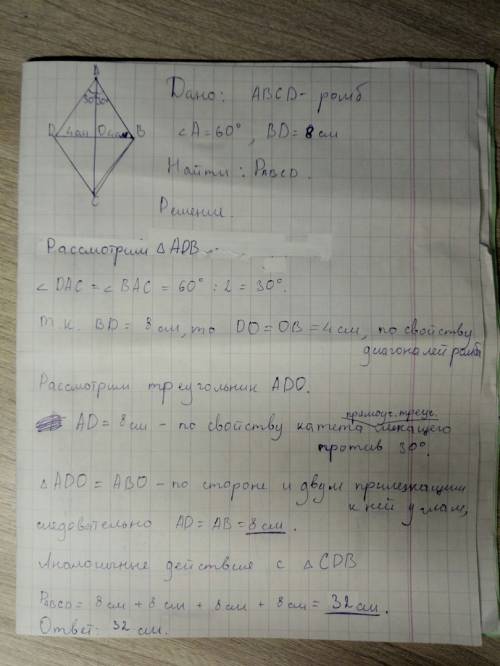 A
30° 30°
D 4см O 4см B
C
Дано: ABCD - ромб
∠A = 60°, BD = 8 см
Найти: PABCD.
Решение.
Рассмотрим △ADB
∠DAC = ∠BAC = 60° : 2 = 30°.
т.к. BD = 8 см, то DO = OB = 4 см, по свойству
диагоналей ромба
Рассмотрим треугольник ADO.
прямоуг. треуг.
AD = 8 см - по свойству катета лежащего
против 30°.
△ADO = ABO - по стороне и двум прилежащим
к ней углам,
следовательно AD = AB = 8 см.
Аналогичные действия с △CDB
PABCD = 8 см + 8 см + 8 см + 8 см = 32 см.
Ответ: 32 см.